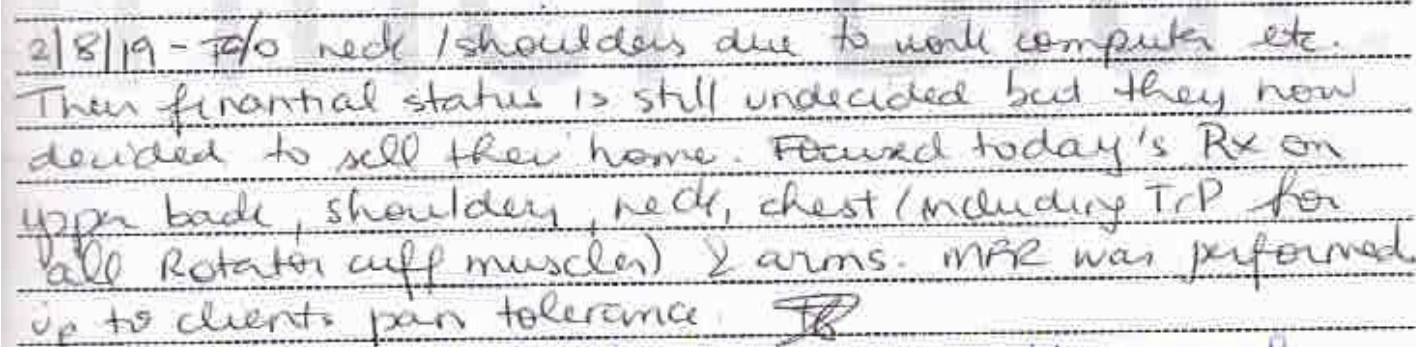 2/8/19 - T/O neck / shoulders due to work computer etc.
Their finantial status is still undecided but they now
decided to sell their home. Focused today's Rx on
upper back, shoulders, neck, chest (including TrP for
all Rotator cuff muscles) & arms. MFR was performed
up to clients pain tolerance.